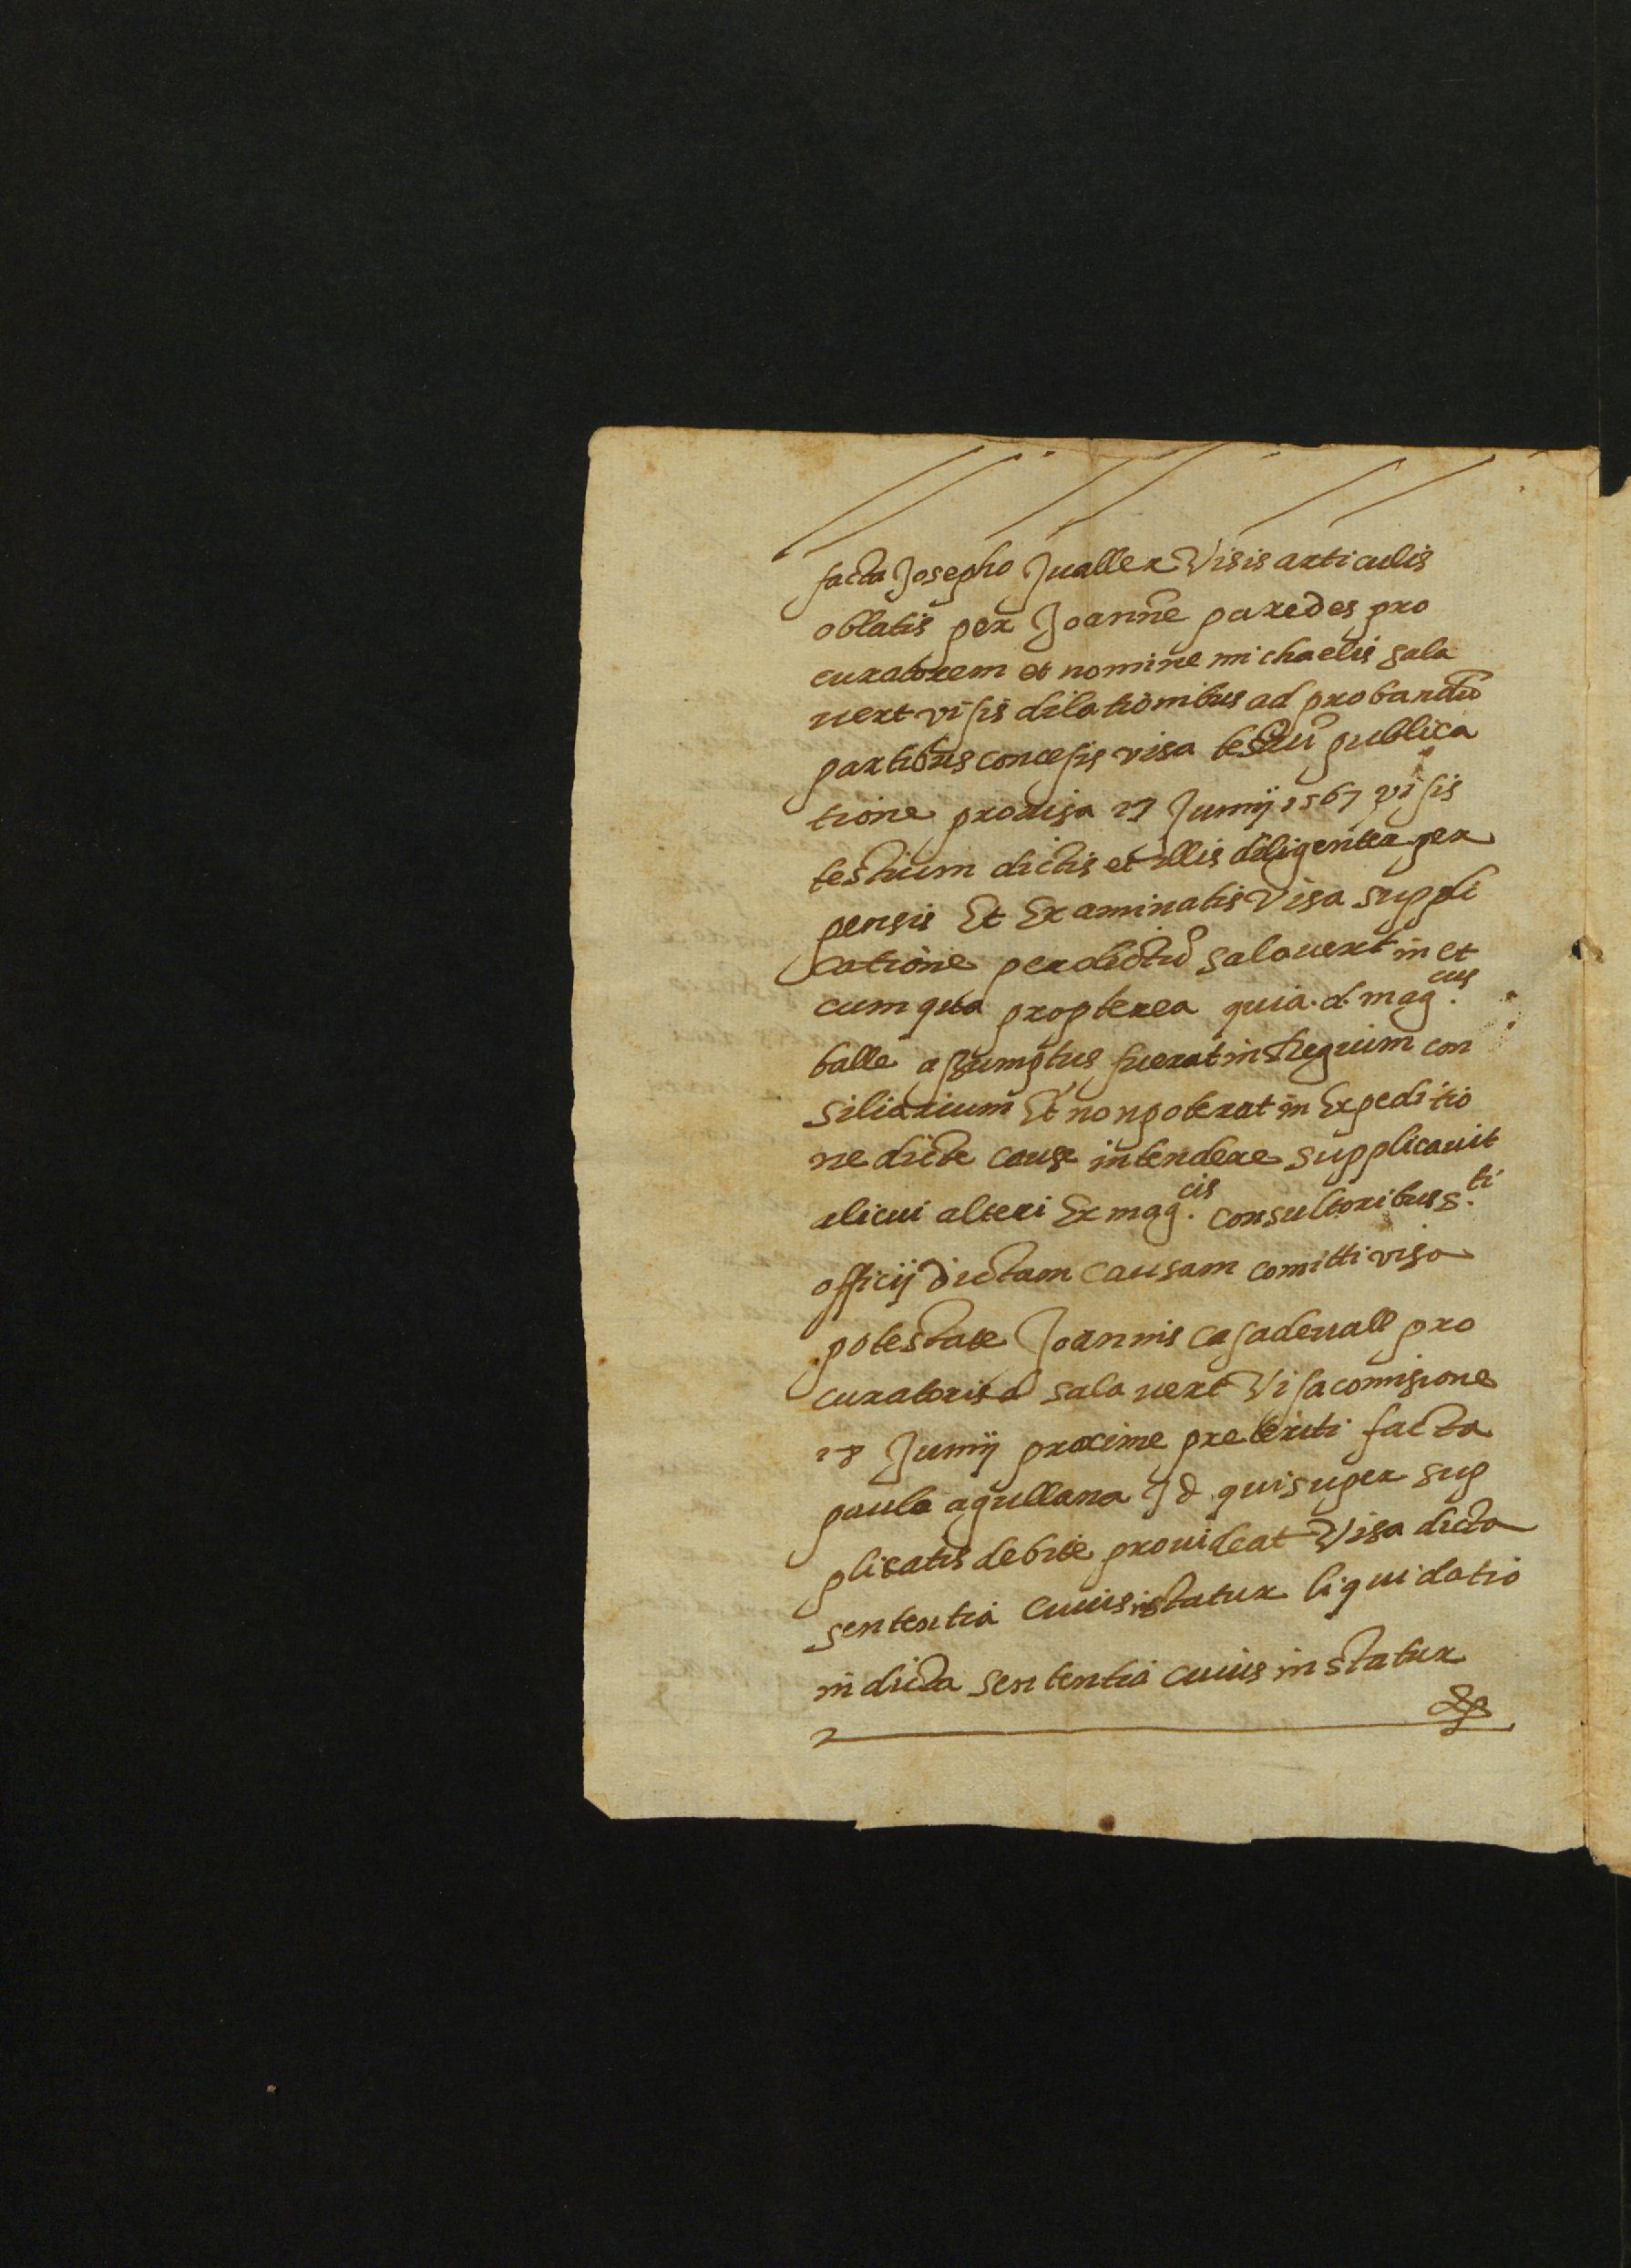 facta Josepho Jualler Visis articulis
oblatis per Joanne paredes pro
curatorem et nomine michaelis sala
uert visis dilationibus ad probandũ
partibus concesis visa testiũ publica
tione prouisa 17 Junij 1567 visis
testium dictis et illis diligenter per
pensis Et Examinatis Visa suppli
catione per dictũ salauert in et
cum qua propterea quia .d. mag.cus
balle assumptus fuerat in Regium con
siliarium Et non poterat in Expeditio
ne dicte cause intendere supplicauit
alicui alteri Ex mag.cis consultoribus s.ti
officij dictam causam comitti visa
potestate Joannis casadeuall pro
curatoris d sala uert Visa comisione
18 Junij proxime preteriti facta
paulo agullana J d qui super sup
plicatis debite prouideat Visa dicta
sententia cuius instatur liquidatio
in dicta sententia cuius instatur